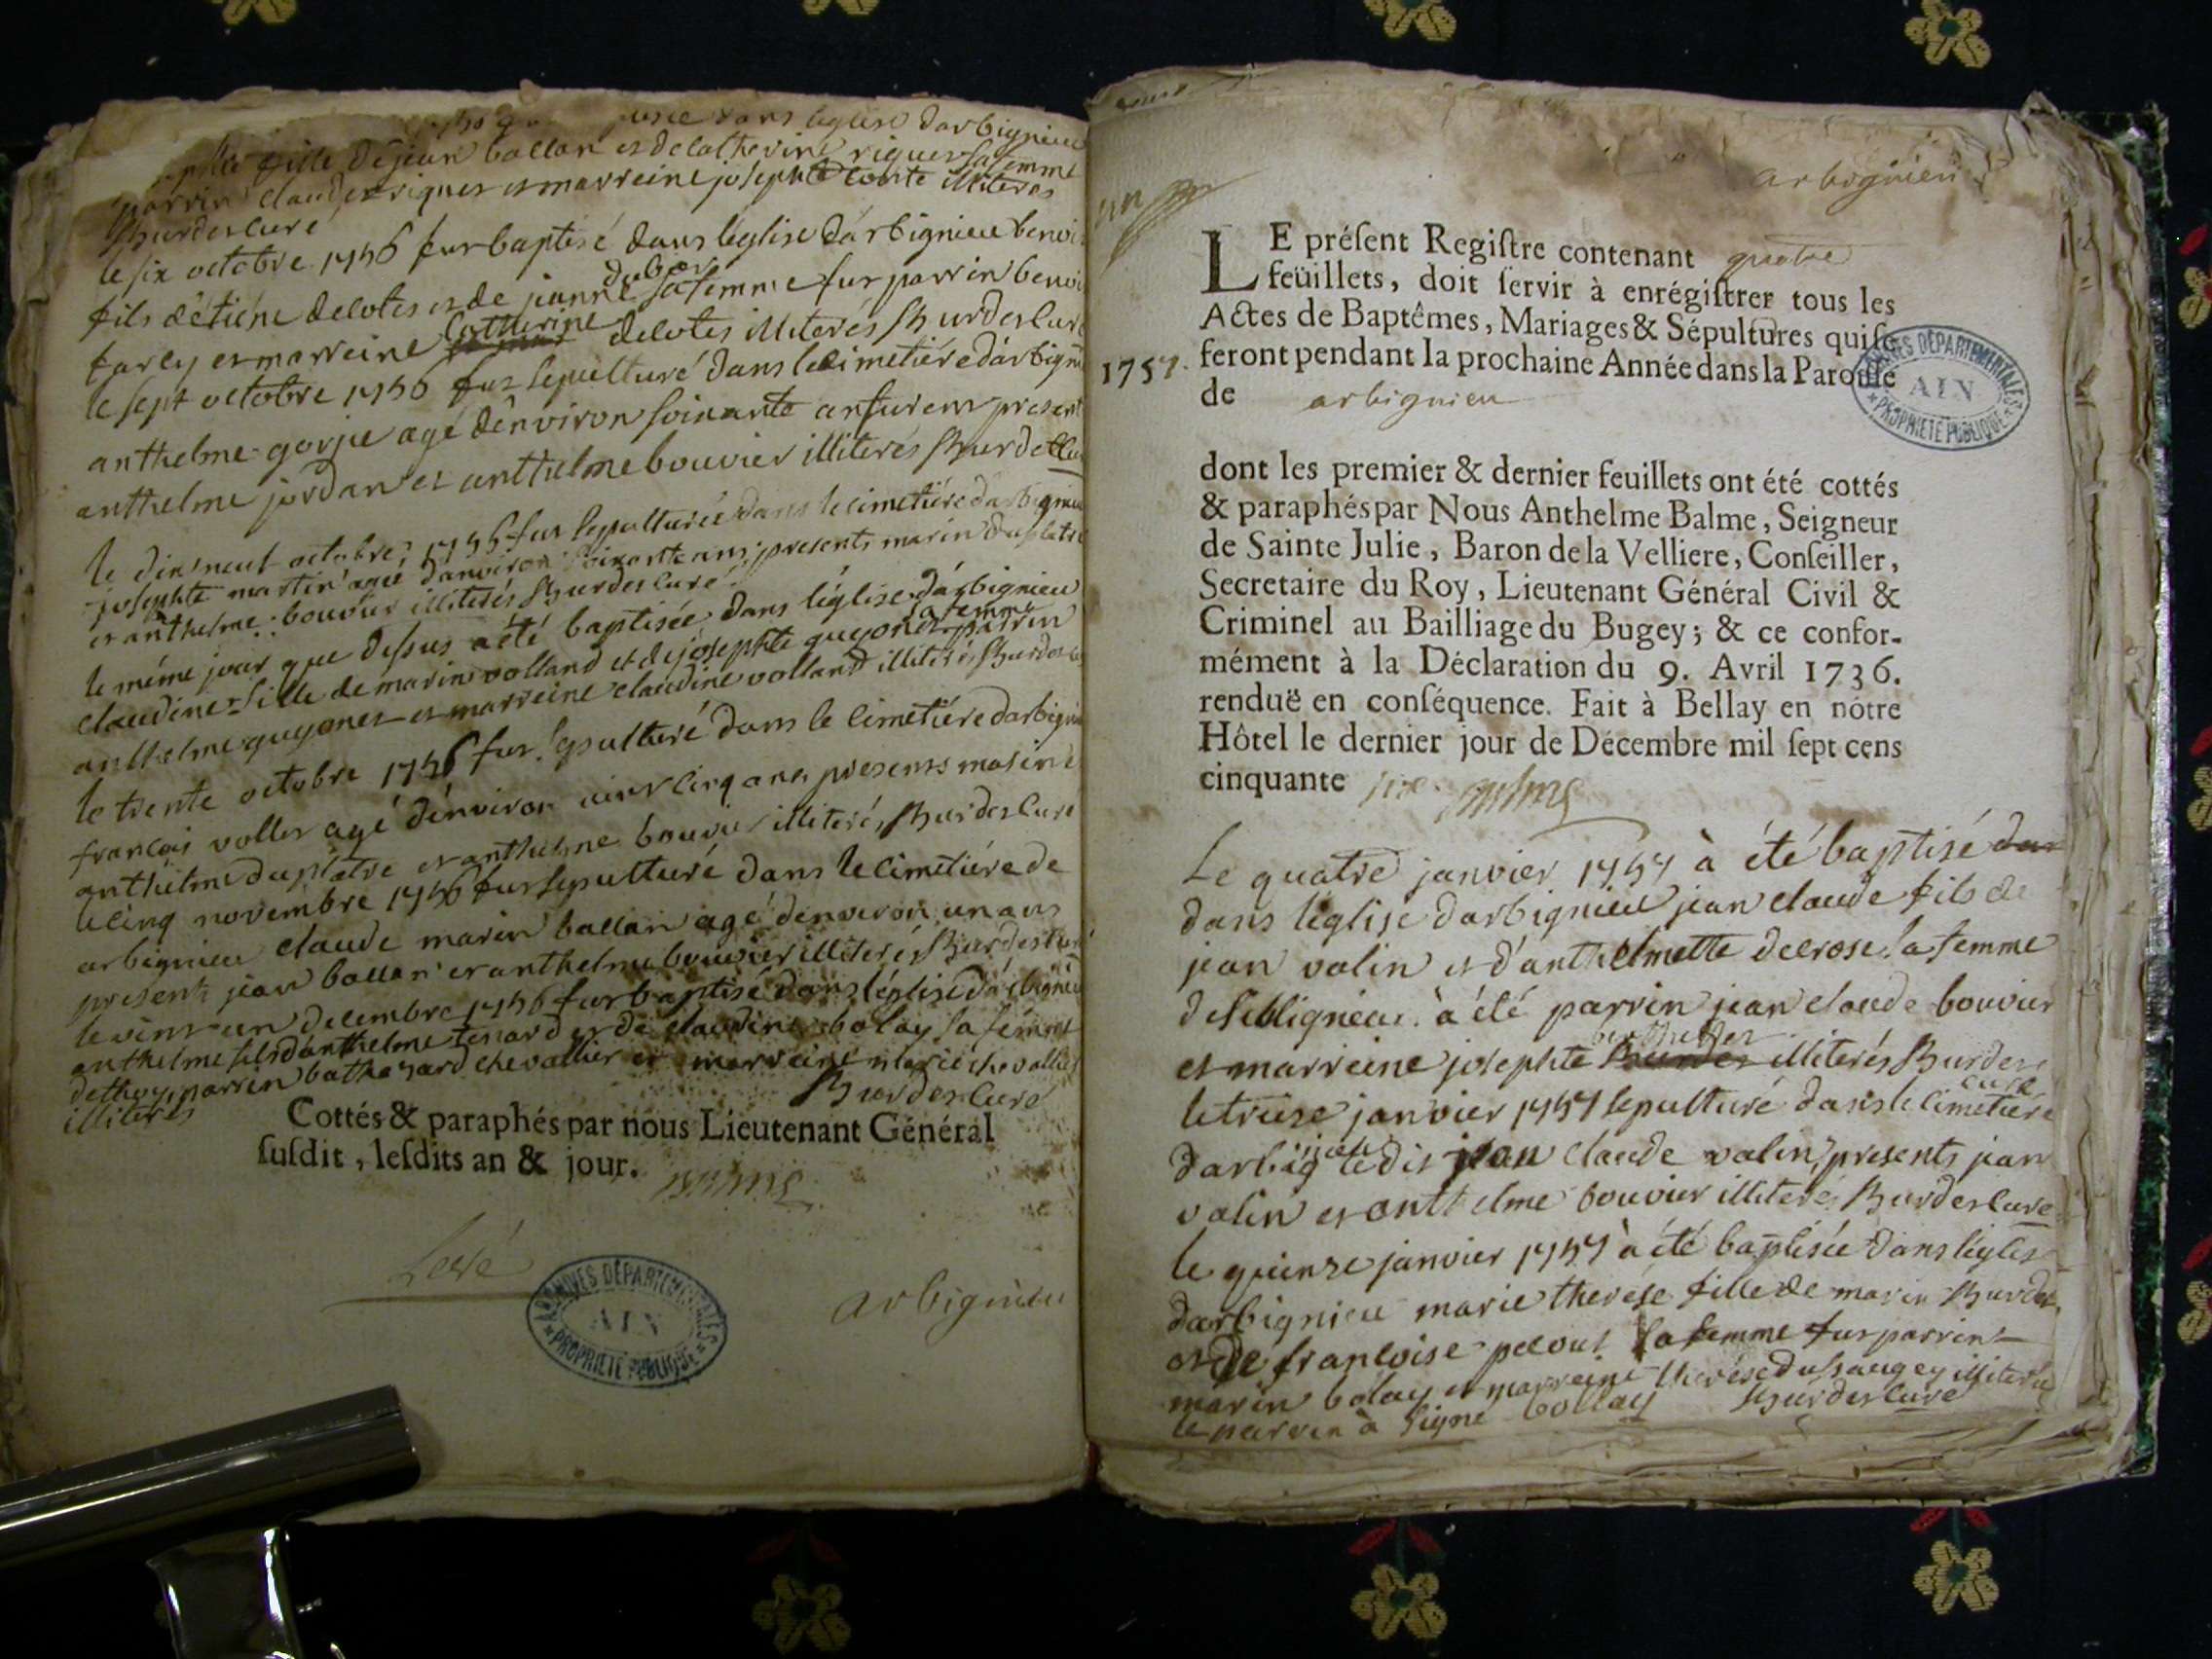 dans leglise darbignieu
fille dejean ballan et de catherine riguet sa femme
parrin claude riguet et marreine josephte conte illiterés
Burdet curé
le six octobre 1756 fut baptisé dans léglise dárbignieu benoi
fils détiéne delotes et de janne dubor sa femme fut parrin benoi
farcy et marreine Catherine delotes illiterés Burdet cure
le sept octobre 1756 fut sepulturé dans le cimetiére dárbigni
anthelme gorjue agé dênviron soixante ans furent present
anthelme jordan et anthelme bouvier illiterés Burdet cu
le dixneuf octobre 1756 fut sepulturée dans le cimetiére darbignieu
josephte martin agée dánviron soixante ans presents marin duplatre
et anthelme bouvier illiterés Burdet curé
le méme jour que dessus a été baptisée dans léglise dárbignieu
claudine fille de marin volland et de josephte guyonet sa femme parrin
anthelme guyonet et marreine claudine volland illiterés Burdet cu
le trente octobre 1756 fut sepulturé dans le cimetiére darbigni
francois vollet agé dénviron vint cinq ans presents
anthelme duplatre et anthelme bouvier illiterés Burdet curé
le cinq novembre 1756 fut sepulturé dans le cimetiére de
arbignieu claude marin ballan agé dénviron un ans
presents jean ballan et anthelme bouvier illiterés Burdet curé
le vint un decembre 1756 fut baptisé dans léglise dárbignieu
anthelme fils dánthelme tenard et de claudine bolay sa femme
parrin balthazard chevallier et marreine marie chevallier
illiterés Burdet Curé
Cottés & paraphés par nous Lieutenant Général
ſuſdit, leſdits an & jour.
Balme
Levé
ARCHIVES DÉPARTEMENTALES
AIN
PROPRIÉTÉ PUBLIQUE
arbignieu
arbignieu
LE préſent Regiſtre contenant quatre
feüillets, doit ſervir à enrégiſtrer tous les
Actes de Baptêmes, Mariages & Sépultures qui ſe
1757. feront pendant la prochaine Année dans la Paroiſſe
de arbignieu
ARCHIVES DÉPARTEMENTALES
AIN
PROPRIÉTÉ PUBLIQUE
dont les premier & dernier feuillets ont été cottés
& paraphés par Nous Anthelme Balme, Seigneur
de Sainte Julie, Baron de la Velliere, Conſeiller,
Secretaire du Roy, Lieutenant Général Civil &
Criminel au Bailliage du Bugey; & ce confor-
mément à la Déclaration du 9. Avril 1736.
renduë en conſéquence. Fait à Bellay en nôtre
Hôtel le dernier jour de Décembre mil ſept cens
cinquante six Balme
Le quatre janvier 1757 à été baptisé dan
dans léglise darbignieu jean claude fils de
jean valin et d'anthelmette decrose sa femme
à été parrin jean claude bouvier
et marreine josephte illiterés Burdet
curé
le treize janvier 1757 sepulturé dans le cimetiére
darbignieu ledit jean claude valin, presents jean
valin et anthelme bouvier illiterés Burdet cure
le quinze janvier 1757 à été baptisée dans léglis
darbignieu marie therése fille de marin Burdet
et de francoise pecout sa femme fut parrin
marin bolay et marreine therése dusaugey illiterée
le parrin à signé bollay Burdet curé